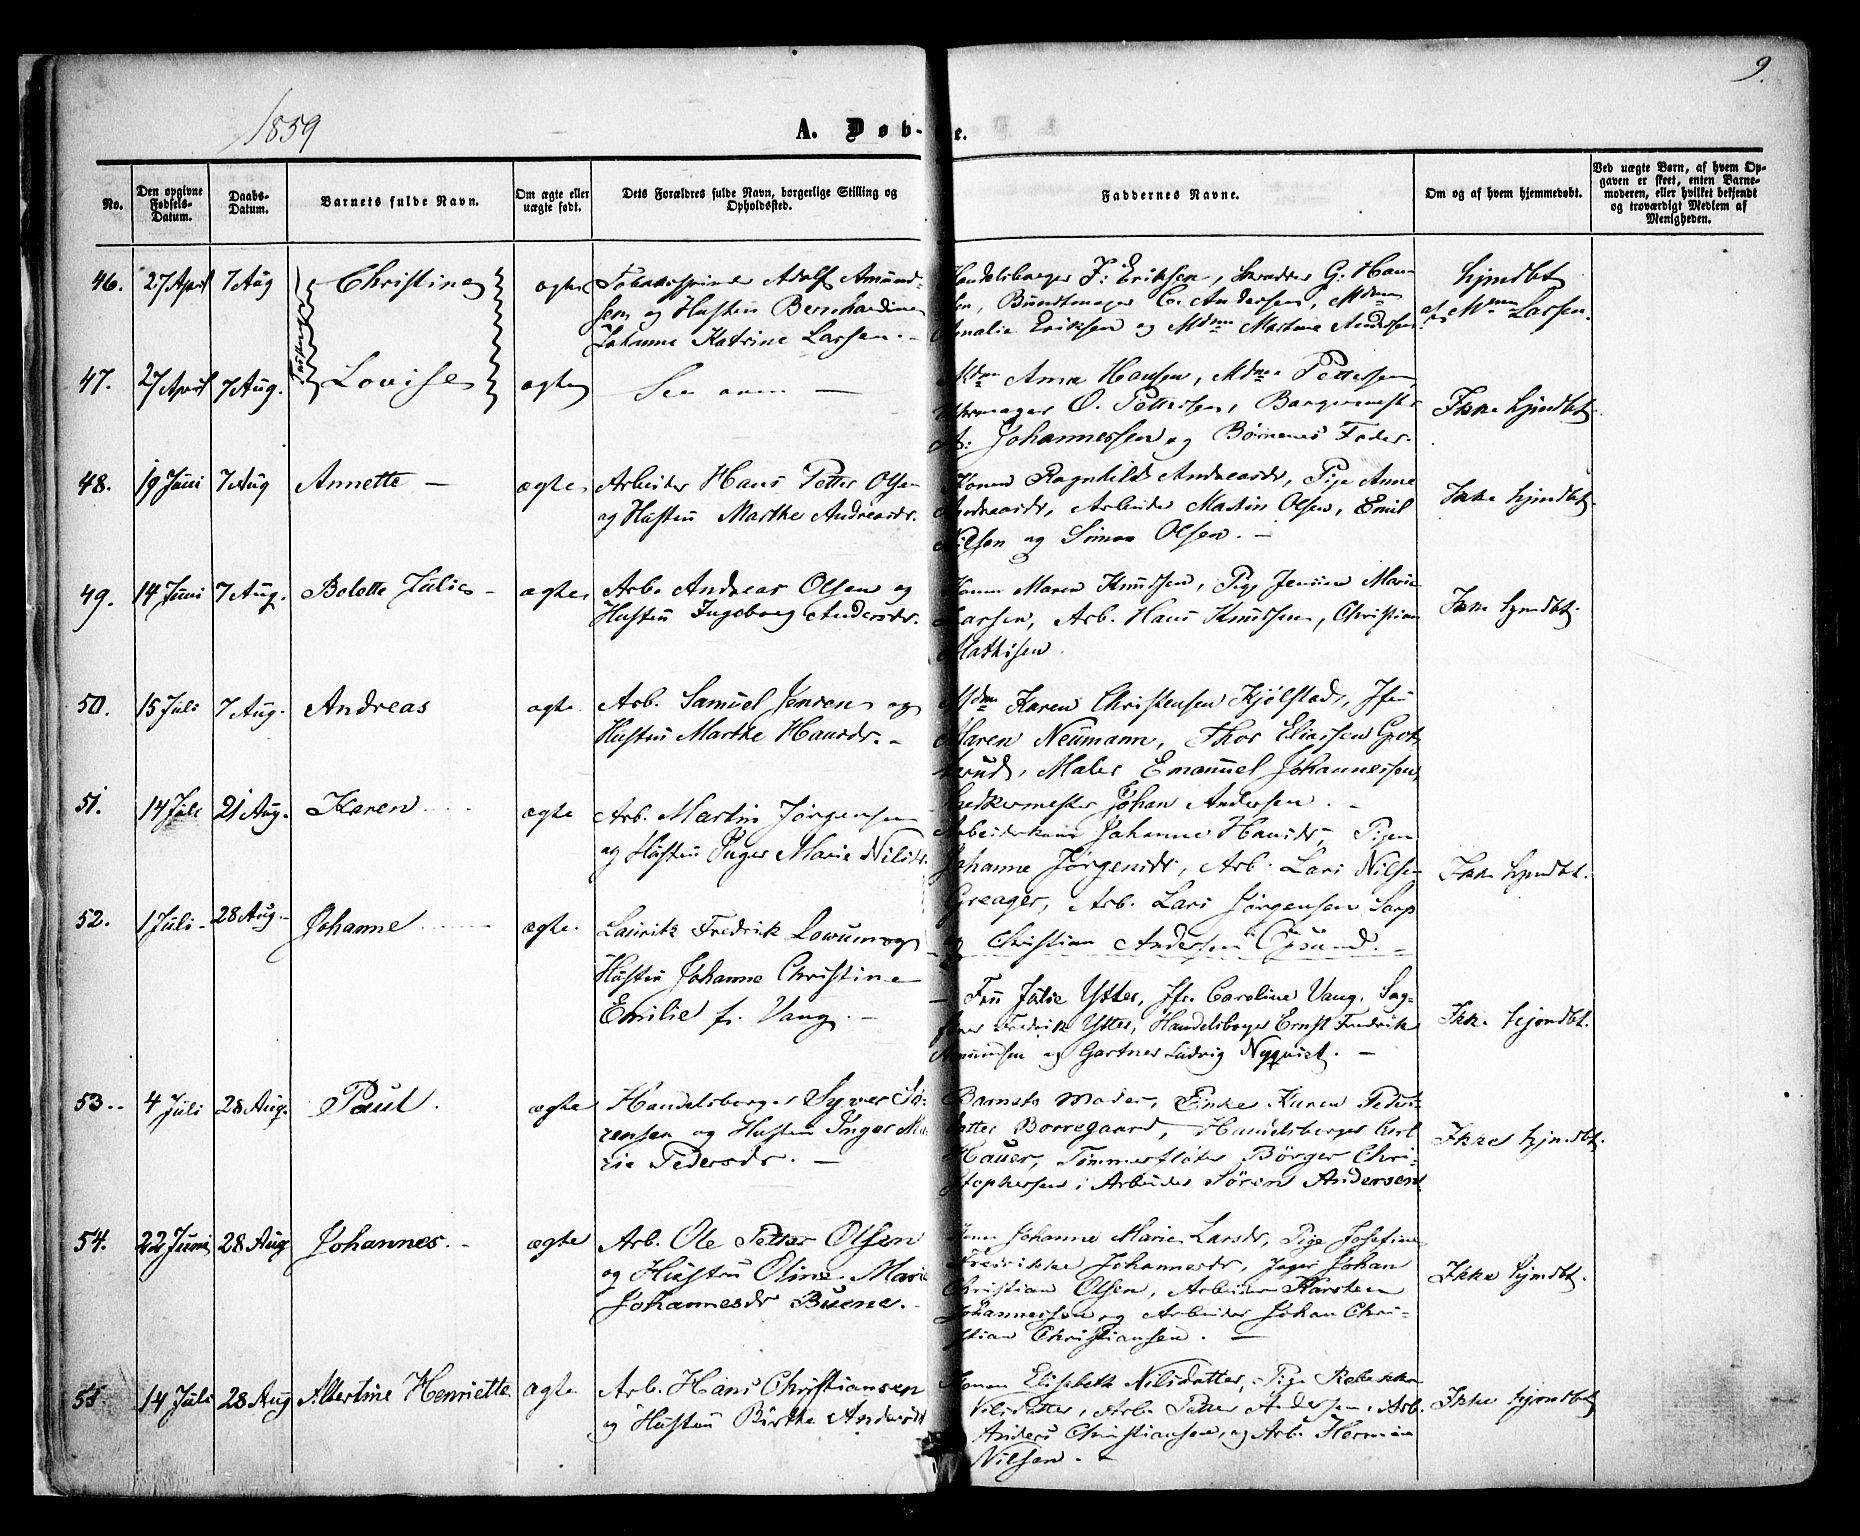 9.
1859
A. Døb-
e.
No.
Den opgivne Fødsels-Datum.
Daabs-Datum.
Barnets fulde Navn.
Om ægte eller uægte født.
Dets Forældres fulde Navn, borgerlige Stilling og Opholdssted.
Faddernes Navne.
Om og af hvem hjemmedøbt.
Ved uægte Børn, af hvem Opgaven er skeet, enten Barnemoderen, eller hvilket bekjendt og troværdigt Medlem af Menigheden.
46. 27 April 7 Aug Christine ægte
Adolf Amund-
sen og Hustru Bernhardine
Johanne Katrine Larsen. -
Handelsborger J: Eriksen, G. Han-
sen, Bundtmager C. Andersen, Mdm
Amalie Eriksen og Mdm Martine Andersen
hjmdbt
af Mdm Larsen.
47. 27 April 7 Aug. Lovise ægte
See oven —
Mdm Anna Hansen, Mdme Pettersen,
Uhrmager O. Pettersen,
A: Johannessen og Børnenes Fader.
Ikke hjmdbt
48. 19 Juni 7 Aug Annette — ægte
Arbeider Hans Petter Olsen
og Hustru Marthe Andreasdr.
Konen Ragnhild Andreasdr, Pige Anne
Andreasdr, Arbeider Martin Olsen, Emil
Nilsen og Simon Olsen. -
Ikke hjmdbt
49. 14 Juni 7 Aug. Bolette Julie - ægte
Arb. Andreas Olsen og
Hustru Ingeborg Andersdr.
Konen Maren Knudsen, Pige Marie
Larsen, Arb. Hans Knudsen, Christian
Mathisen.
Ikke hjmdbt.
50. 15 Juli 7 Aug. Andreas ægte
Arb. Samuel Jensen og
Hustru Marthe Hansdr. -
Mdm Karen Christensen Kjølstad, Jfr
Maren Neumann, Thor Eliassen
Maler Emanuel Johannessen,
Johan Andersen. -
51. 14 Juli 21 Aug. Karen ægte
Arb. Martin Jørgensen
og Hustru Inger Marie Nilsdr.
Johanne Hansdr, Pigen
Johanne Jørgensdr, Arb. Lars Nilsen
Greager, Arb. Lars Jørgensen Sarp
og Christian Andersen Opsund. -
Ikke hjmdbt.
52. 1 Juli - 28 Aug. - Johanne ægte.
Lauritz Fredrik Lowum og
Hustru Johanne Christine
Emilie f. Vang. -
- Fru Julie Ytter, Jfr. Caroline Vang, Sag-
fører Fredrik Ytter, Handelsborger Ernst Fredrik
Amundsen og Gartner Ludvig Nyqvist. -
Ikke hjmdbt.
53. 4 Juli 28 Aug. Paul. ægte
Handelsborger Syver Sø-
rensen og Hustru Inger Ma-
rie Pedersdr. -
Barnets Moder, Enke Karen Peders-
datter Borregaard, Handelsborger Carl
Hauer, Tømmerfløter Børger Chri-
stophersen, Arbeider Søren Andersen
Ikke hjmdbt.
54. 22 Juni 28 Aug Johannes. - ægte
Arb. Ole Petter Olsen
og Hustru Oline Marie
Johannesdr Buene. -
Johanne Marie Larsdr, Pige Josefine
Fredrikke Johannesdr, Johan
Christian Olsen, Arbeider Karsten
Johannessen og Arbeider Johan Chri-
stian Christiansen. -
Ikke hjmdbt.
55. 14 Juli 28 Aug Albertine Henriette ægte
Arb. Hans Christiansen
og Hustru Birthe Andersdr
Konen Elisabeth Nilsdatter, Pige Rebekka
Nilsdatter, Arb. Petter Andersen, Arb.
Anders Christiansen, og Arb. Herman
Nilsen. -
Ikke hjmdbt